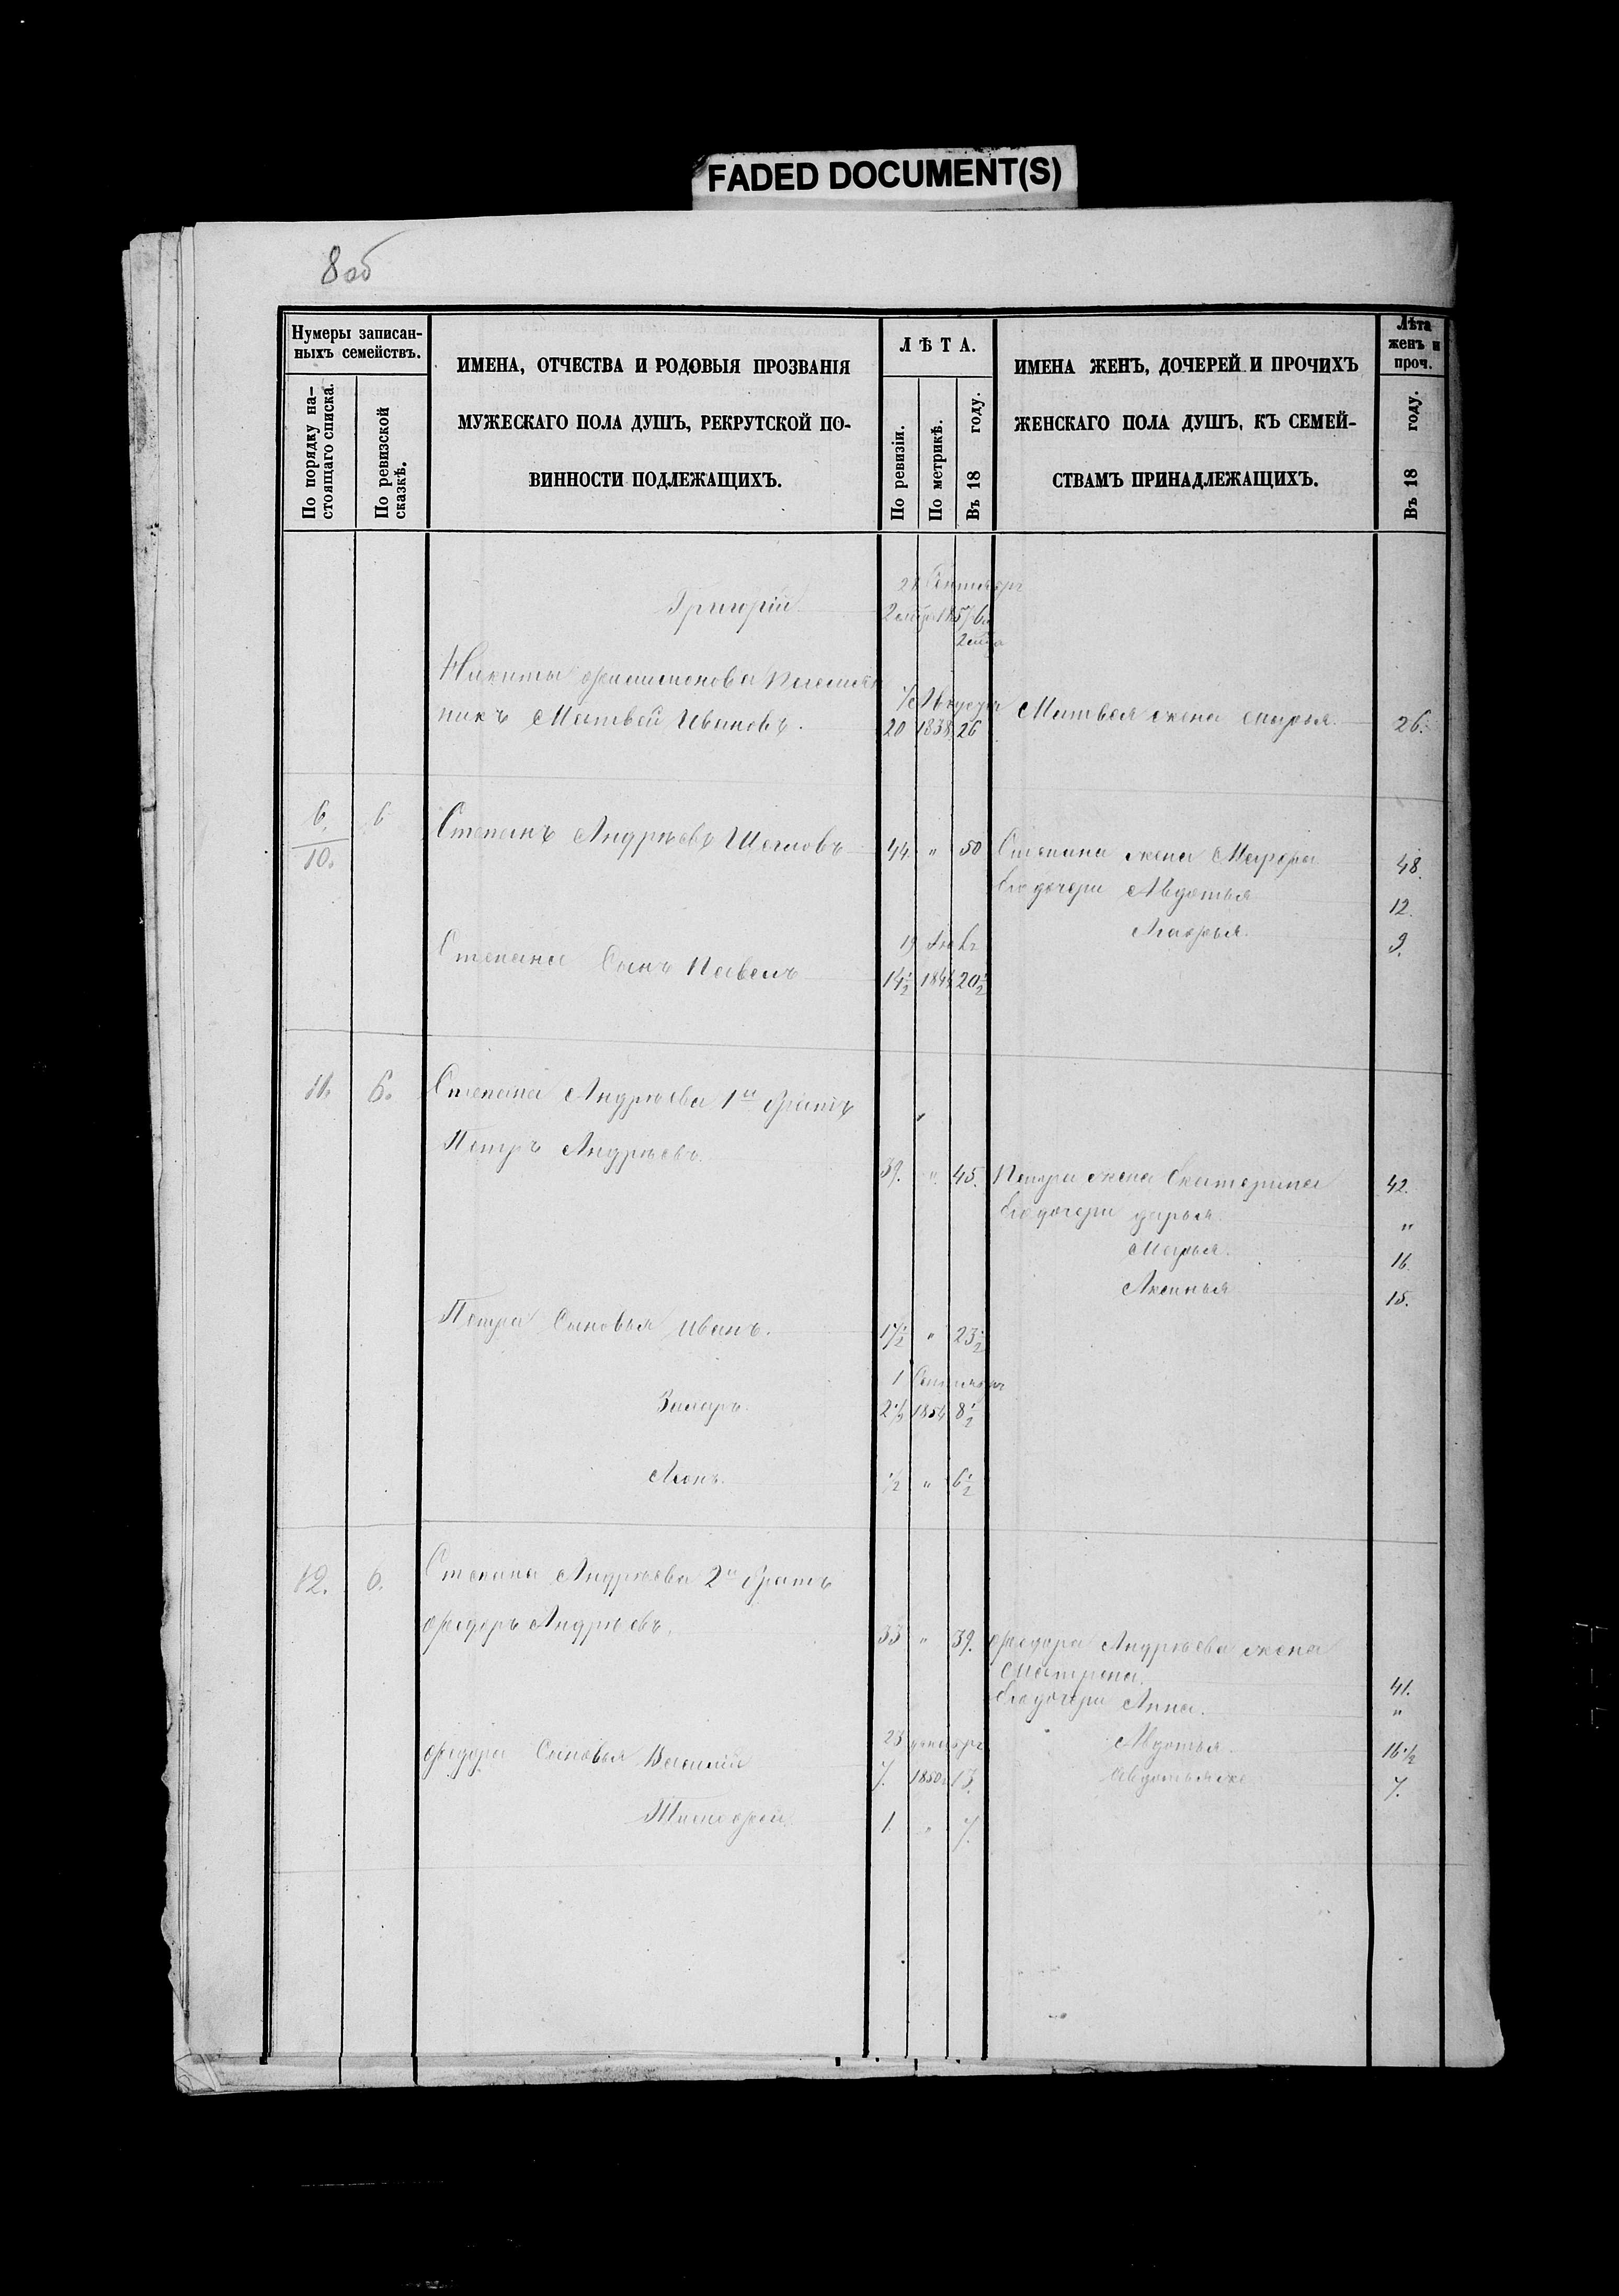 FADED DOCUMENT(S)
8 об
Нумеры записан-
ныхъ семействъ.
По порядку на-
стоящаго списка.
По ревизской
сказкѣ.
ИМЕНА, ОТЧЕСТВА И РОДОВЫЯ ПРОЗВАНІЯ
МУЖЕСКАГО ПОЛА ДУШЪ, РЕКРУТСКОЙ ПО-
ВИННОСТИ ПОДЛЕЖАЩИХЪ.
ЛѢТА.
По ревизіи.
По метрикѣ.
Въ 18 году.
ИМЕНА ЖЕНЪ, ДОЧЕРЕЙ И ПРОЧИХЪ
ЖЕНСКАГО ПОЛА ДУШЪ, КЪ СЕМЕЙ-
СТВАМЪ ПРИНАДЛЕЖАЩИХЪ.
Лѣта
женъ и
проч.
Въ 18 году.
Григорій
Никиты Филимонова Племян
никъ Матвей Ивановъ. 20 1838 26 Матвея жена Марья 26.
6. 6
10.
Степанъ Андрѣевъ Щегловъ 44. " 50 Степана жена Мавра 48.
Его дочери Авдотья 12.
Марья. 9.
Степана Сынъ Павелъ 14½ 1844 20½
11. 6. Степана Андрѣева 1й братъ
Петръ Андрѣевъ. 39. " 45. Петра жена Екатерина 42.
Его дочери Дарья "
Марья. 16.
Аксинья 15.
Петра Сыновья Иванъ. 17½ " 23½
1 Сентября
2½ 1854 8½
½ " 6½
12. 6. Степана Андрѣева 2й братъ
Федоръ Андрѣевъ. 33 " 39. Федора Андрѣева жена
Матрена. 41.
Его дочери Анна. "
23 декабря Авдотья 16½
Федора Сыновья Василій 7. 1850 13. Авдотья же 7.
Тимофей. 1. " 7.